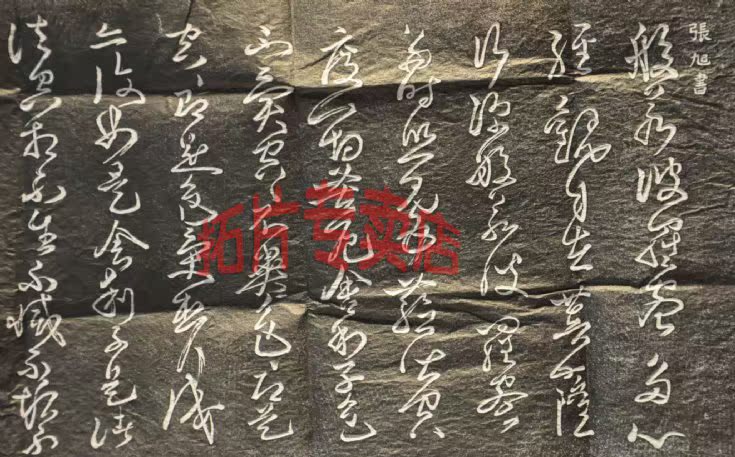 張旭書
般若波羅蜜多心
經觀自在菩薩
行深般若波羅蜜
時照見五蘊皆空
度一切苦厄舍利子色
不異空空不異色色即是
空空即是色受想行識
亦復如是舍利子是諸
法空相不生不滅不垢不
拓片专卖店